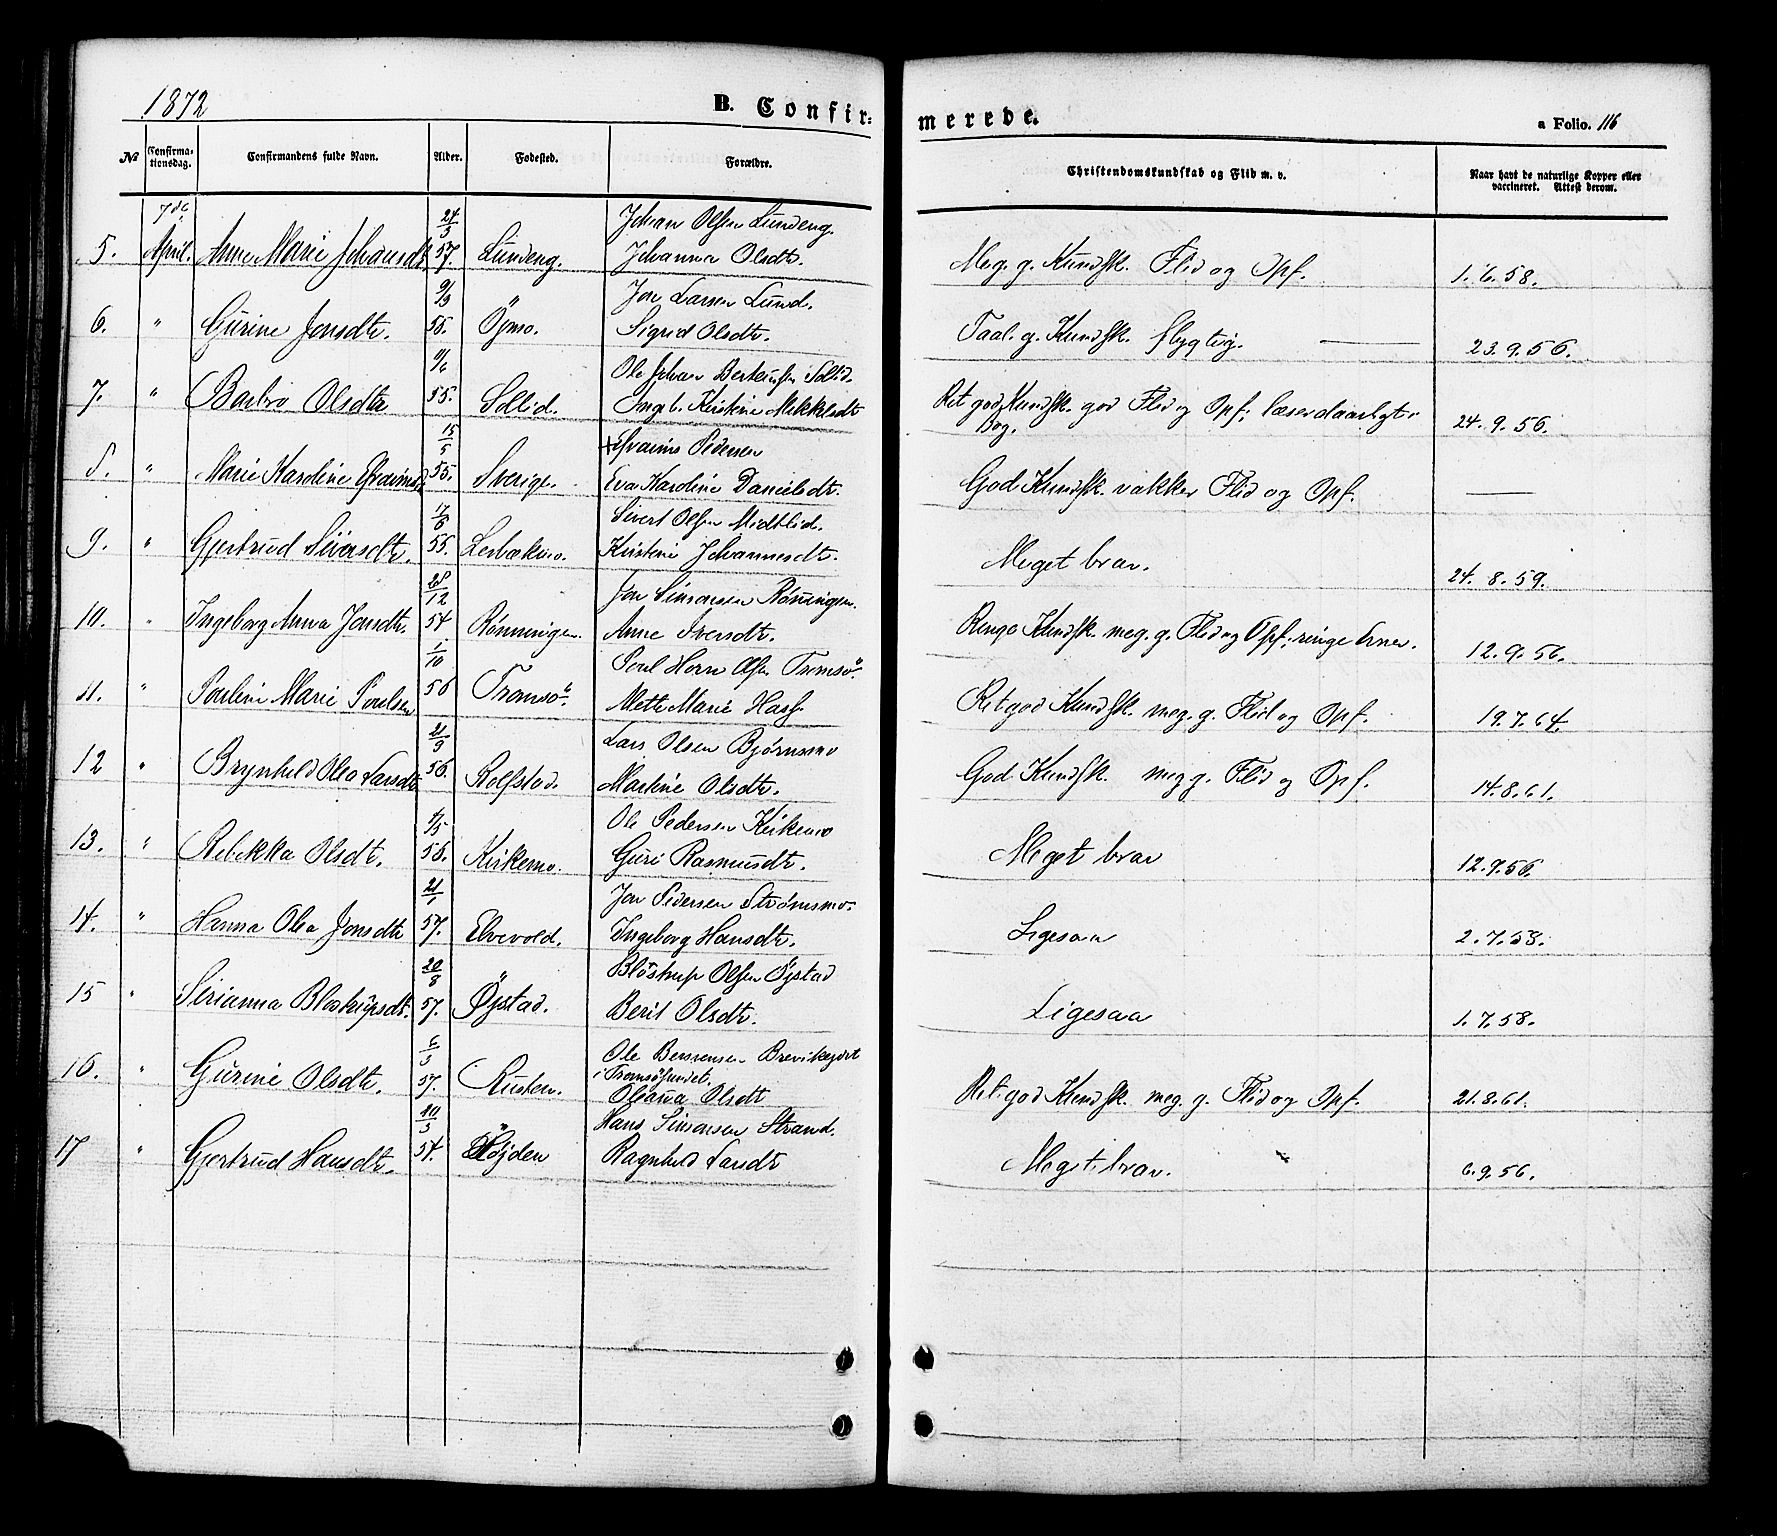 1872 B. Confir= merede. a Folio. 116
No Confirma-tionsdag. Confirmandens fulde Navn. Alder. Fødested. Forældre. Christendomskundskab og Flid m. v. Naar havt de naturlige Kopper eller vaccineret. Attest derom.
7de 24/3 Johan Olsen Lundeng.
5. April. Anne Marie Johansdt. 57. Lundeng. Johanna Olsdtr. Meg. g. Kundsk. Flid og Opf. 1.6.58.
9/3 Jon Larsen Lund.
6. " Gurine Jonsdtr. 56. Öymo. Sigrid Olsdtr. Taal. g. Kundsk. flygtig. 23.9.56.
11/6 Ole Johan Berteusen Sollid.
7. " Barbro Olsdtr 55. Sollid. Ingeb. Kirstine Mikkelsdtr Ret god Kundsk. god Flid og Opf; læser daarligt i Bog. 24.9.56.
15/5 + Efraims Pedersen
8. " Marie Karoline Efraimsd 55. Sverige. Eva Karoline Danielsdtr. God Kundsk. vakker Flid og Opf. —
17/6 Sivert Olsen Midtlid.
9. " Gjertrud Siversdtr. 55. Lerbækmo. Kirstine Johannesdtr. Meget brav. 24.8.59.
28/12 Jon Simonsen Rönningen.
10. " Ingeborg Anna Jonsdtr. 54 Rönningen. Anne Iversdtr. Ringe Kundsk. meg. g. Flid og Opf; ringe Evner. 12.9.56.
1/10 Poul Horn Olsen Tromsö.
11. " Pauline Marie Poulsen 56 Tromsö. Mette Marie Hass. Ret god Kundsk. meg. g. Flid og Opf. 19.7.64.
21/9 Lars Olsen Bjørnsmo
12 " Brynhild Olea Larsdtr 56. Rolfstad. Martine Olsdtr. God Kundsk. meg g. Flid og Opf. 14.8.61.
4/5 Ole Pedersen Kirkemo
13. " Rebekka Olsdtr. 56. Kirkemo. Guri Rasmusdtr. Meget brav 12.9.56.
21/1 Jon Pedersen Strømsmo.
14. " Hanna Olea Jonsdtr 57. Elvevold. Ingeborg Hansdtr. Ligesaa 2.7.58.
20/8 Blöstrup Olsen Öystad
15 " Sirianna Blostrupsdt. 57. Öystad. Berit Olsdtr. Ligesaa 1.7.58.
6/3 Ole Berntsen Brevikejdet
i Tromsösundet.
16. " Gurine Olsdtr. 57. Rusten. Oleana Olsdt Ret god Kundsk. meg. g. Flid og Opf. 21.8.61.
10/5 Hans Simonsen Strand.
17 " Gjertrud Hansdtr. 57. Höjden Ragnhild Larsdt Meget brav. 6.9.56.